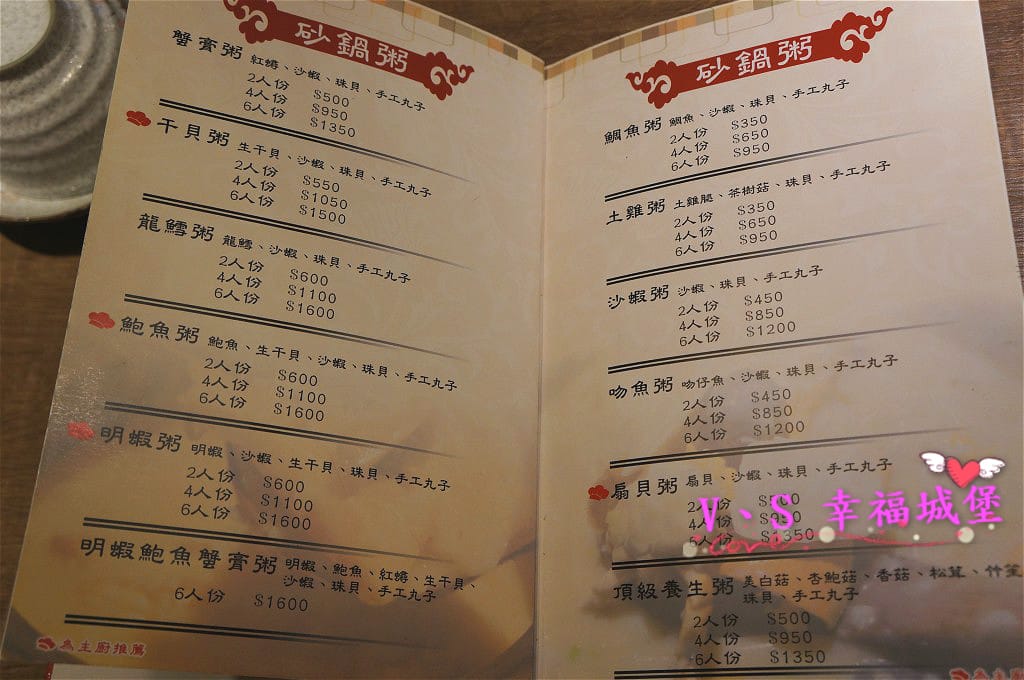 砂鍋粥
蟹膏粥 紅蟳、沙蝦、珠貝、手工丸子
2人份 $500
4人份 $950
6人份 $1350
干貝粥 生干貝、沙蝦、珠貝、手工丸子
2人份 $550
4人份 $1050
6人份 $1500
龍鱈粥 龍鱈、沙蝦、珠貝、手工丸子
2人份 $600
4人份 $1100
6人份 $1600
鮑魚粥 鮑魚、生干貝、沙蝦、珠貝、手工丸子
2人份 $600
4人份 $1100
6人份 $1600
明蝦粥 明蝦、沙蝦、生干貝、珠貝、手工丸子
2人份 $600
4人份 $1100
6人份 $1600
明蝦鮑魚蟹膏粥 明蝦、鮑魚、紅蟳、生干貝、
沙蝦、珠貝、手工丸子
6人份 $1600
為主廚推薦
砂鍋粥
鯛魚粥 鯛魚、沙蝦、珠貝、手工丸子
2人份 $350
4人份 $650
6人份 $950
土雞粥 土雞腿、茶樹菇、珠貝、手工丸子
2人份 $350
4人份 $650
6人份 $950
沙蝦粥 沙蝦、珠貝、手工丸子
2人份 $450
4人份 $850
6人份 $1200
吻魚粥 吻仔魚、沙蝦、珠貝、手工丸子
2人份 $450
4人份 $850
6人份 $1200
扇貝粥 扇貝、沙蝦、珠貝、手工丸子
2人份
4人份 $950
6人份 $1350
V、S 幸福城堡
頂級養生粥 美白菇、杏鮑菇、香菇、松茸、竹笙
珠貝、手工丸子
2人份 $500
4人份 $950
6人份 $1350